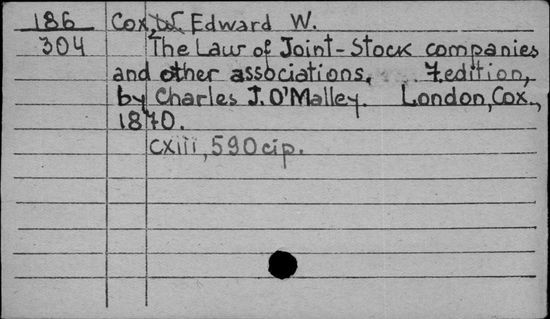 186 Cox, W. Edward W.
304 The Law of Joint-Stock companies
and other associations. 7.edition,
by Charles J. O'Malley. London, Cox.,
1870.
cxiii, 590 cip.